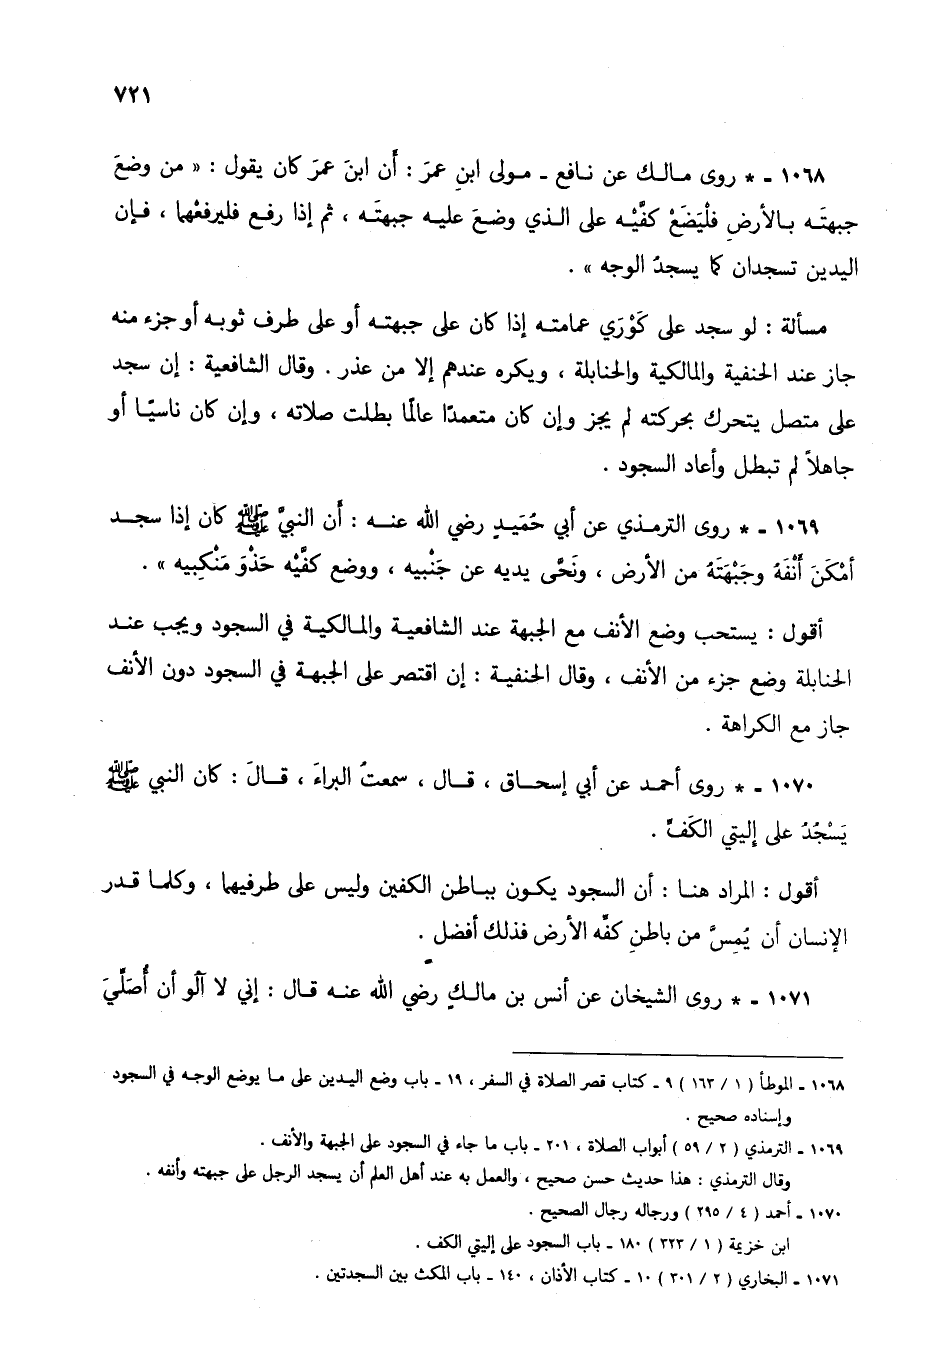 ٧٢١
١٠٦٨ - * روى مالك عن نافع - مولى ابنِ عمرَ : أَن ابنَ عمرَ كان يقول : « من وضعَ
جبهتَه بالأرضِ فلْيَضَعْ كفَّيْه على الذي وضعَ عليه جبهتَه ، ثم إذا رفع فليرفعْهما ، فإن
اليدين تسجدان كما يسجدُ الوجه » .
مسألة : لو سجد على كَوْرَي عمامته إذا كان على جبهته أو على طرف ثوبه أو جزء منه
جاز عند الحنفية والمالكية والحنابلة ، ويكره عندهم إلا من عذر . وقال الشافعية : إن سجد
على متصل يتحرك بحركته لم يجز وإن كان متعمدًا عالمًا بطلت صلاته ، وإن كان ناسيًا أو
جاهلاً لم تبطل وأعاد السجود .
١٠٦٩ - * روى الترمذي عن أبي حُمَيدٍ رضي الله عنه : أَن النبيَّ ﷺ كان إذا سجد
أَمْكَنَ أَنْفَهُ وجَبْهَتَهُ من الأرض ، ونَحَّى يديه عن جَنْبيه ، ووضع كفَّيْه حَذْوَ مَنْكِبيه » .
أقول : يستحب وضع الأنف مع الجبهة عند الشافعية والمالكية في السجود ويجب عند
الحنابلة وضع جزء من الأنف ، وقال الحنفية : إن اقتصر على الجبهة في السجود دون الأنف
جاز مع الكراهة .
١٠٧٠ - * روى أحمد عن أبي إسحاق ، قال ، سمعتُ البراءَ ، قالَ : كان النبي ﷺ
يَسْجُدُ على إليتي الكَفِّ .
أقول : المراد هنا : أن السجود يكون بباطن الكفين وليس على طرفيهما ، وكلما قدر
الإنسان أن يُمِسَّ من باطنِ كفِّه الأرض فذلك أفضل .
١٠٧١ - * روى الشيخان عن أنس بن مالكٍ رضي الله عنه قال : إني لا آلُو أن أُصَلِّيَ
١٠٦٨ - الموطأ ( ١ / ١٦٣ ) ٩ - كتاب قصر الصلاة في السفر ، ١٩ - باب وضع اليدين على ما يوضع الوجه في السجود
وإسناده صحيح .
١٠٦٩ - الترمذي ( ٢ / ٥٩ ) أبواب الصلاة ، ٢٠١ - باب ما جاء في السجود على الجبهة والأنف .
وقال الترمذي : هذا حديث حسن صحيح ، والعمل به عند أهل العلم أن يسجد الرجل على جبهته وأنفه .
١٠٧٠ - أحمد ( ٤ / ٢٩٥ ) ورجاله رجال الصحيح .
ابن خزيمة ( ١ / ٣٢٣ ) ١٨٠ - باب السجود على إليتي الكف .
١٠٧١ - البخاري ( ٢ / ٣٠١ ) ١٠ - كتاب الأذان ، ١٤٠ - باب المكث بين السجدتين .